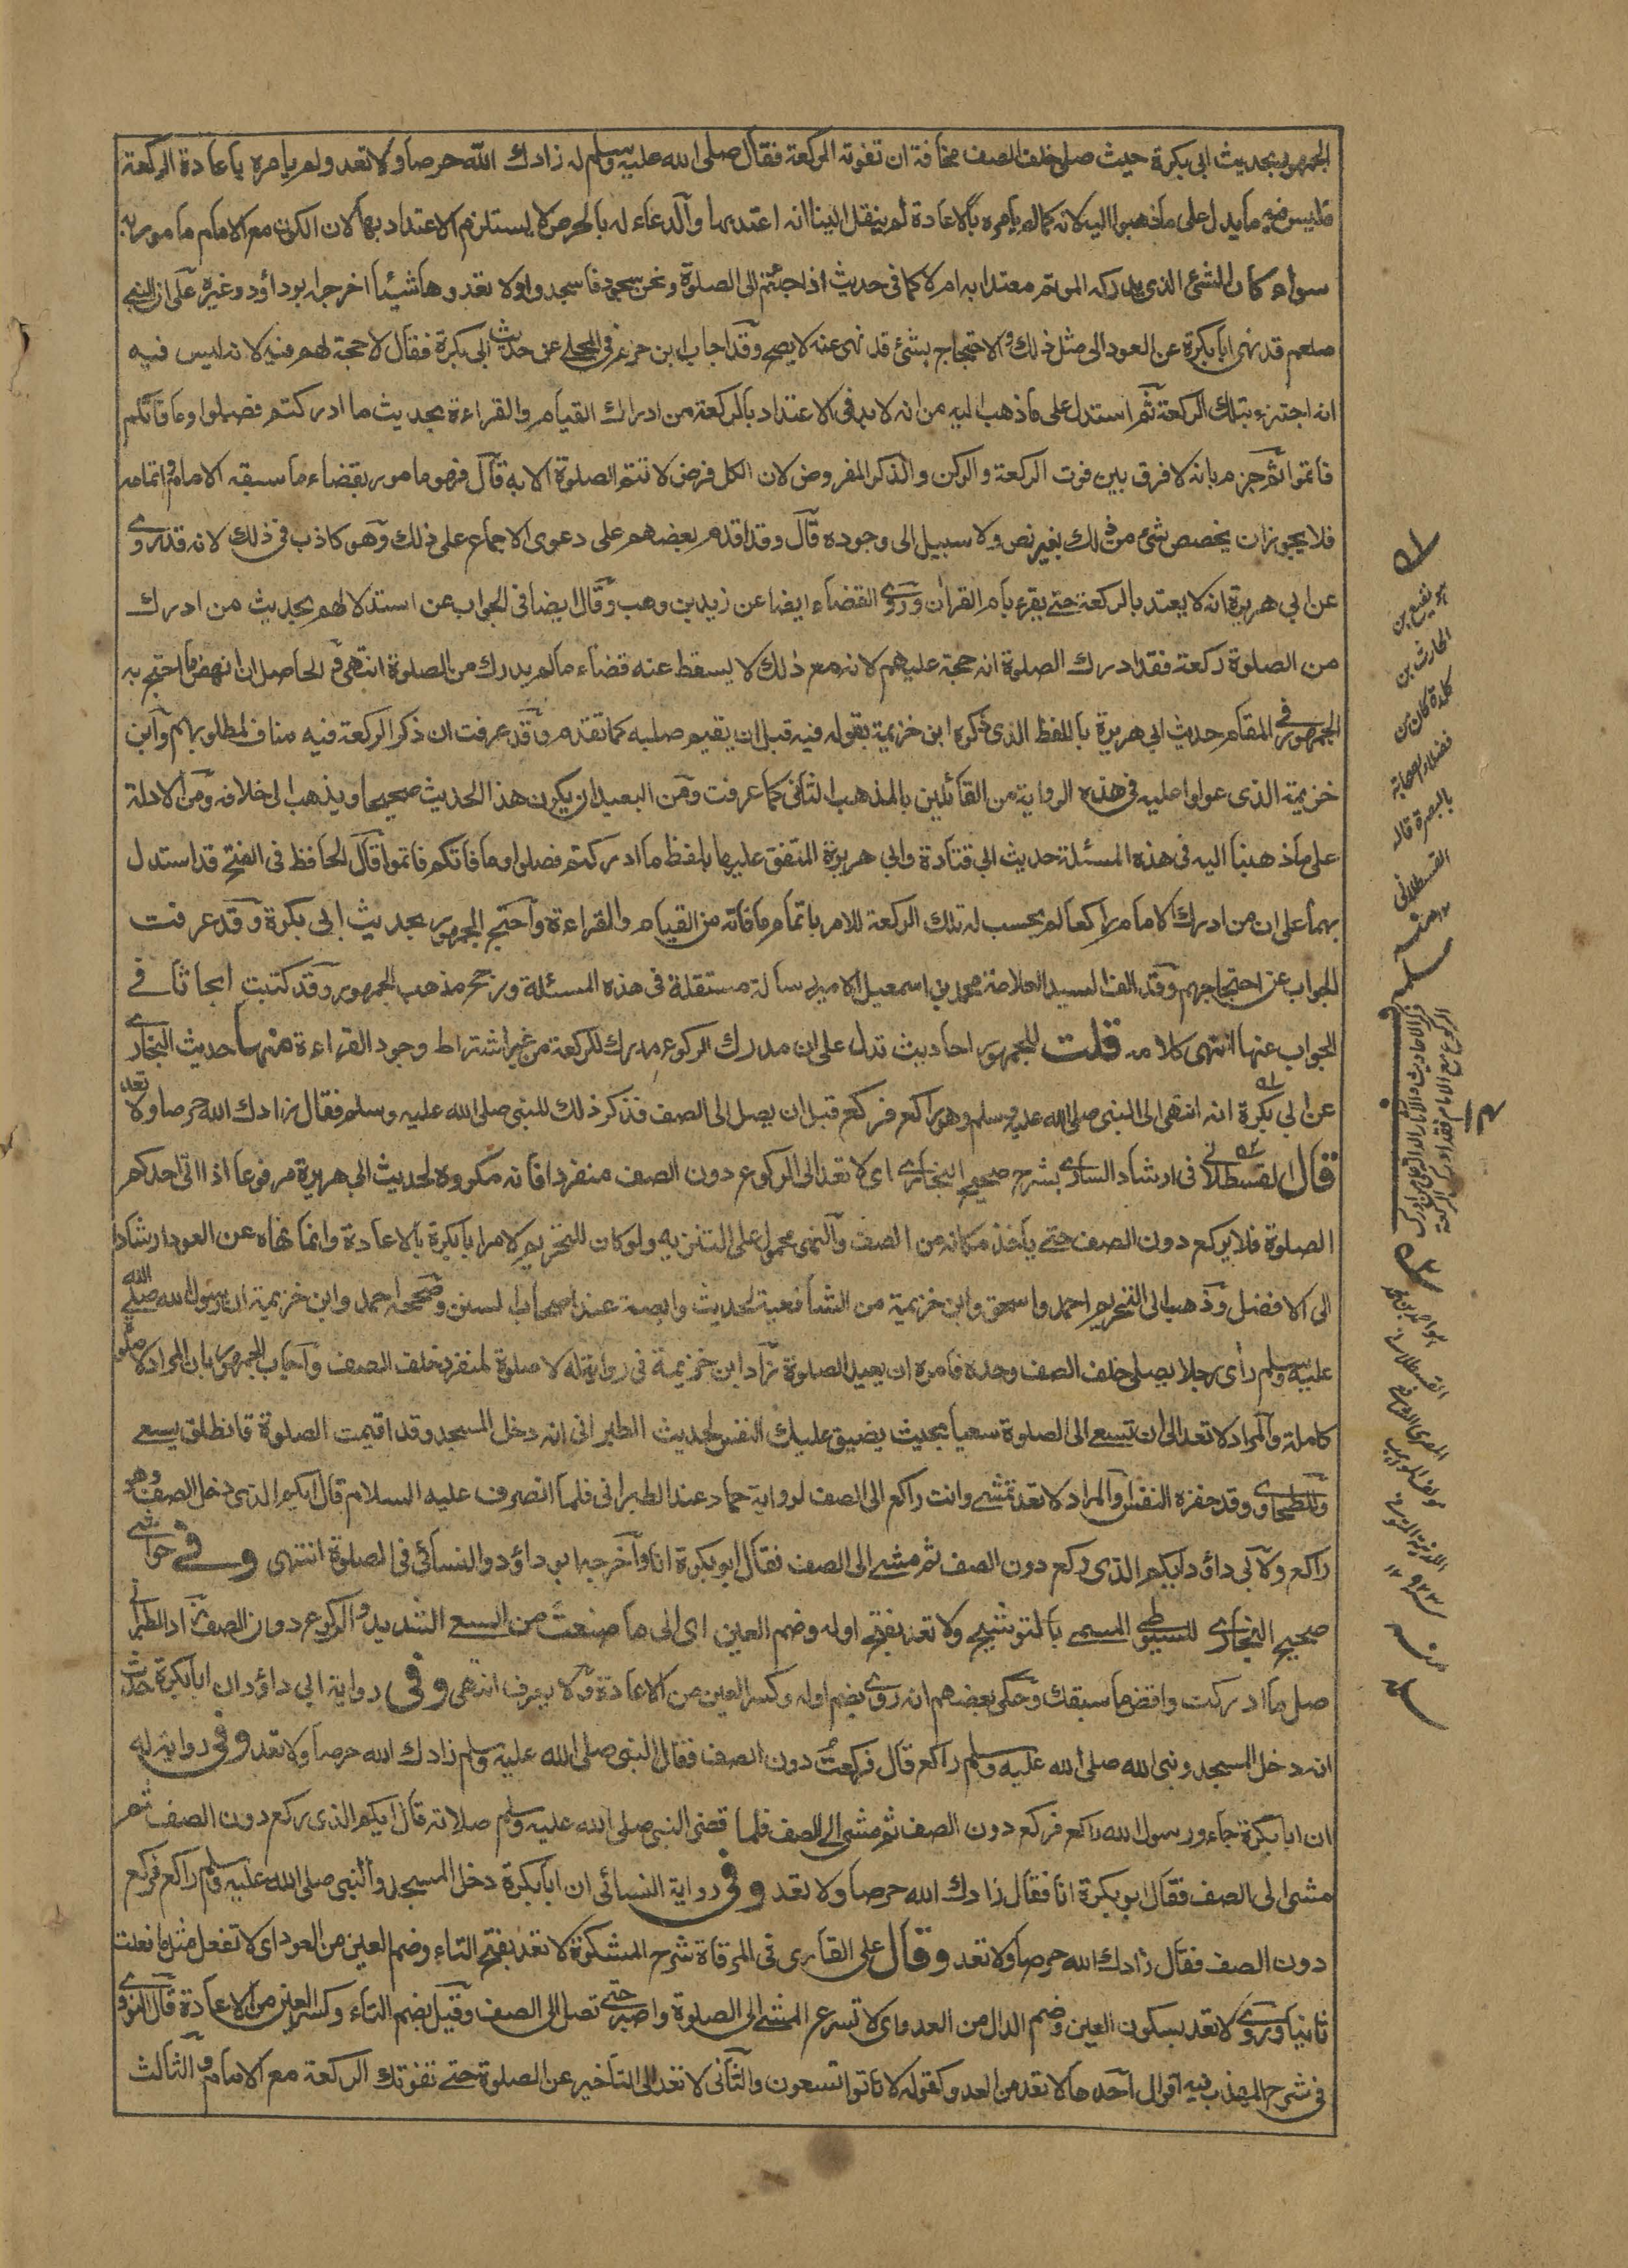 الجمهور بحديث ابى بكرة حيث صلى خلف الصف مخافة ان تفوته الركعة فقال صلى الله عليه وسلم له زادك الله حرصا ولا تعد ولم يامره باعادة الركعة
فليس فيه ما يدل على ما ذهبوا اليه لانه كما لم يامره بالاعادة لم ينقل الينا انه اعتد بها والدعاء له بالحرص لا يستلزم الاعتداد بها لان الكون مع الامام مامور به
سواء كان الشئ الذى يدركه المؤتم معتدا به ام لا كما فى حديث اذا جئتم الى الصلوة ونحن سجود فاسجدوا ولا تعدوها شيئا اخرجه ابو داؤد وغيره على ان النبى
صلعم قد نهى ابا بكرة عن العود الى مثل ذلك والاحتجاج بشئ قد نهى عنه لا يصح وقد اجاب ابن حزم فى المحلى عن حديث ابى بكرة فقال لا حجة لهم فيه لانه ليس فيه
انه اجتزء بتلك الركعة ثم استدل على ما ذهب اليه من انه لا بد فى الاعتداد بالركعة من ادراك القيام والقراءة بحديث ما ادركتم فصلوا وما فاتكم
فاتموا ثم جزم بانه لا فرق بين فوت الركعة والركن والذكر المفروض لان الكل فرض لا تتم الصلوة الا به قال فهو مامور بقضاء ما سبقه الامام واتمامه
فلا يجوز ان يخصص شئ من ذلك بغير نص ولا سبيل الى وجوده قال وقد اقدم بعضهم على دعوى الاجماع على ذلك وهو كاذب فى ذلك لانه قد روى
عن ابى هريرة انه لا يعتد بالركعة حتى يقرء بام القران وروى القضاء ايضا عن زيد بن وهب وقال ايضا فى الجواب عن استدلالهم بحديث من ادرك
من الصلوة ركعة فقد ادرك الصلوة انه حجة عليهم لانه مع ذلك لا يسقط عنه قضاء ما لم يدرك من الصلوة انتهى والحاصل ان انهض ما احتج به
الجمهور فى المقام حديث ابى هريرة باللفظ الذى ذكره ابن خزيمة بقوله فيه قبل ان يقيم صلبه كما تقدم وقد عرفت ان ذكر الركعة فيه مناف لمطلوبهم وابن
خزيمة الذى عولوا عليه فى هذه الرواية من القائلين بالمذهب الثانى كما عرفت ومن البعيد ان يكون هذا الحديث صحيحا ويذهب الى خلافه ومن الادلة
على ما ذهبنا اليه فى هذه المسئلة حديث ابى قتادة وابى هريرة المتفق عليهما بلفظ ما ادركتم فصلوا وما فاتكم فاتموا قال الحافظ فى الفتح قد استدل
بهما على ان من ادرك الامام راكعا لم يحسب له تلك الركعة للامر باتمام ما فاته من القيام والقراءة واحتج الجمهور بحديث ابى بكرة وقد عرفت
الجواب عن احتجاجهم وقد الف السيد العلامة محمد بن اسمعيل الامير رسالة مستقلة فى هذه المسئلة ورجح مذهب الجمهور وقد كتبت ابحاثا فى
الجواب عنها انتهى كلامه قلت للجمهور احاديث تدل على ان مدرك الركوع مدرك للركعة من غير اشتراط وجود القراءة منها حديث البخارى
عن ابى بكرة انه انتهى الى النبى صلى الله عليه وسلم وهو راكع فركع قبل ان يصل الى الصف فذكر ذلك للنبى صلى الله عليه وسلم فقال زادك الله حرصا ولا تعد
قال القسطلانى فى ارشاد السارى بشرح صحيح البخارى اى لا تعد الى الركوع دون الصف منفردا فانه مكروه لحديث ابى هريرة مرفوعا اذا اتى احدكم
الصلوة فلا يركع دون الصف حتى ياخذ مكانه من الصف والنهى محمول على التنزيه ولو كان للتحريم لامر ابا بكرة بالاعادة وانما نهاه عن العود ارشادا
الى الافضل وذهب الى التحريم احمد واسحق وابن خزيمة من الشافعية لحديث وابصة عند اصحاب السنن وصححه احمد وابن خزيمة ان رسول الله صلى الله
عليه وسلم رأى رجلا يصلى خلف الصف وحده فامره ان يعيد الصلوة زاد ابن خزيمة فى رواية له لا صلوة لمنفرد خلف الصف واجاب الجمهور بان المراد لا صلوة
كاملة والمراد لا تعد الى ان تسعى الى الصلوة سعيا بحيث يضيق عليك النفس لحديث الطبرانى انه دخل المسجد وقد اقيمت الصلوة فانطلق يسعى
وللطحاوى وقد حفزه النفس والمراد لا تعد تمشى وانت راكع الى الصف لرواية حماد عند الطبرانى فلما انصرف عليه السلام قال ايكم الذى دخل الصف وهو
راكع ولابى داؤد ايكم الذى ركع دون الصف ثم مشى الى الصف فقال ابو بكرة انا واخرجه ابو داؤد والنسائى فى الصلوة انتهى وفى حواشى
صحيح البخارى للسيوطى المسمى بالتوشيح ولا تعد بفتح اوله وضم العين اى الى ما صنعت من السعى الشديد والركوع دون الصف زاد الطبرانى
صل ما ادركت واقض ما سبقك وحكى بعضهم انه روى بضم اوله وكسر العين من الاعادة ولا يعرف انتهى وفى رواية ابى داؤد ان ابا بكرة حدث
انه دخل المسجد ونبى الله صلى الله عليه وسلم راكع قال فركعت دون الصف فقال النبى صلى الله عليه وسلم زادك الله حرصا ولا تعد وفى رواية له
ان ابا بكرة جاء ورسول الله راكع فركع دون الصف ثم مشى الى الصف فلما قضى النبى صلى الله عليه وسلم صلاته قال ايكم الذى ركع دون الصف ثم
مشى الى الصف فقال ابو بكرة انا فقال زادك الله حرصا ولا تعد وفى رواية النسائى ان ابا بكرة دخل المسجد والنبى صلى الله عليه وسلم راكع فركع
دون الصف فقال زادك الله حرصا ولا تعد وقال على القارى فى المرقاة شرح المشكوة لا تعد بفتح التاء وضم العين من العود اى لا تفعل مثل ما فعلت
ثانيا وروى لا تعد بسكون العين وضم الدال من العدو اى لا تسرع المشى الى الصلوة واصبر حتى تصل الى الصف وقيل بضم التاء وكسر العين من الاعادة قال النووى
فى شرح المهذب فيه اقوال احدها لا تعد من العدو كقوله لا تاتوا تسعون والثانى لا تعد الى التاخير عن الصلوة حتى تفوتك الركعة مع الامام والثالث
هو نفيع بن
الحارث بن
كلدة كان من
فضلاء الصحابة
بالبصرة قاله
القسطلانى
١٢ منه
ذكر الاحاديث والاثار الدالة على ان من ادرك
الركوع مع الامام فقد ادرك الركعة
القسطلانى
المصرى
٩٢٣
منه